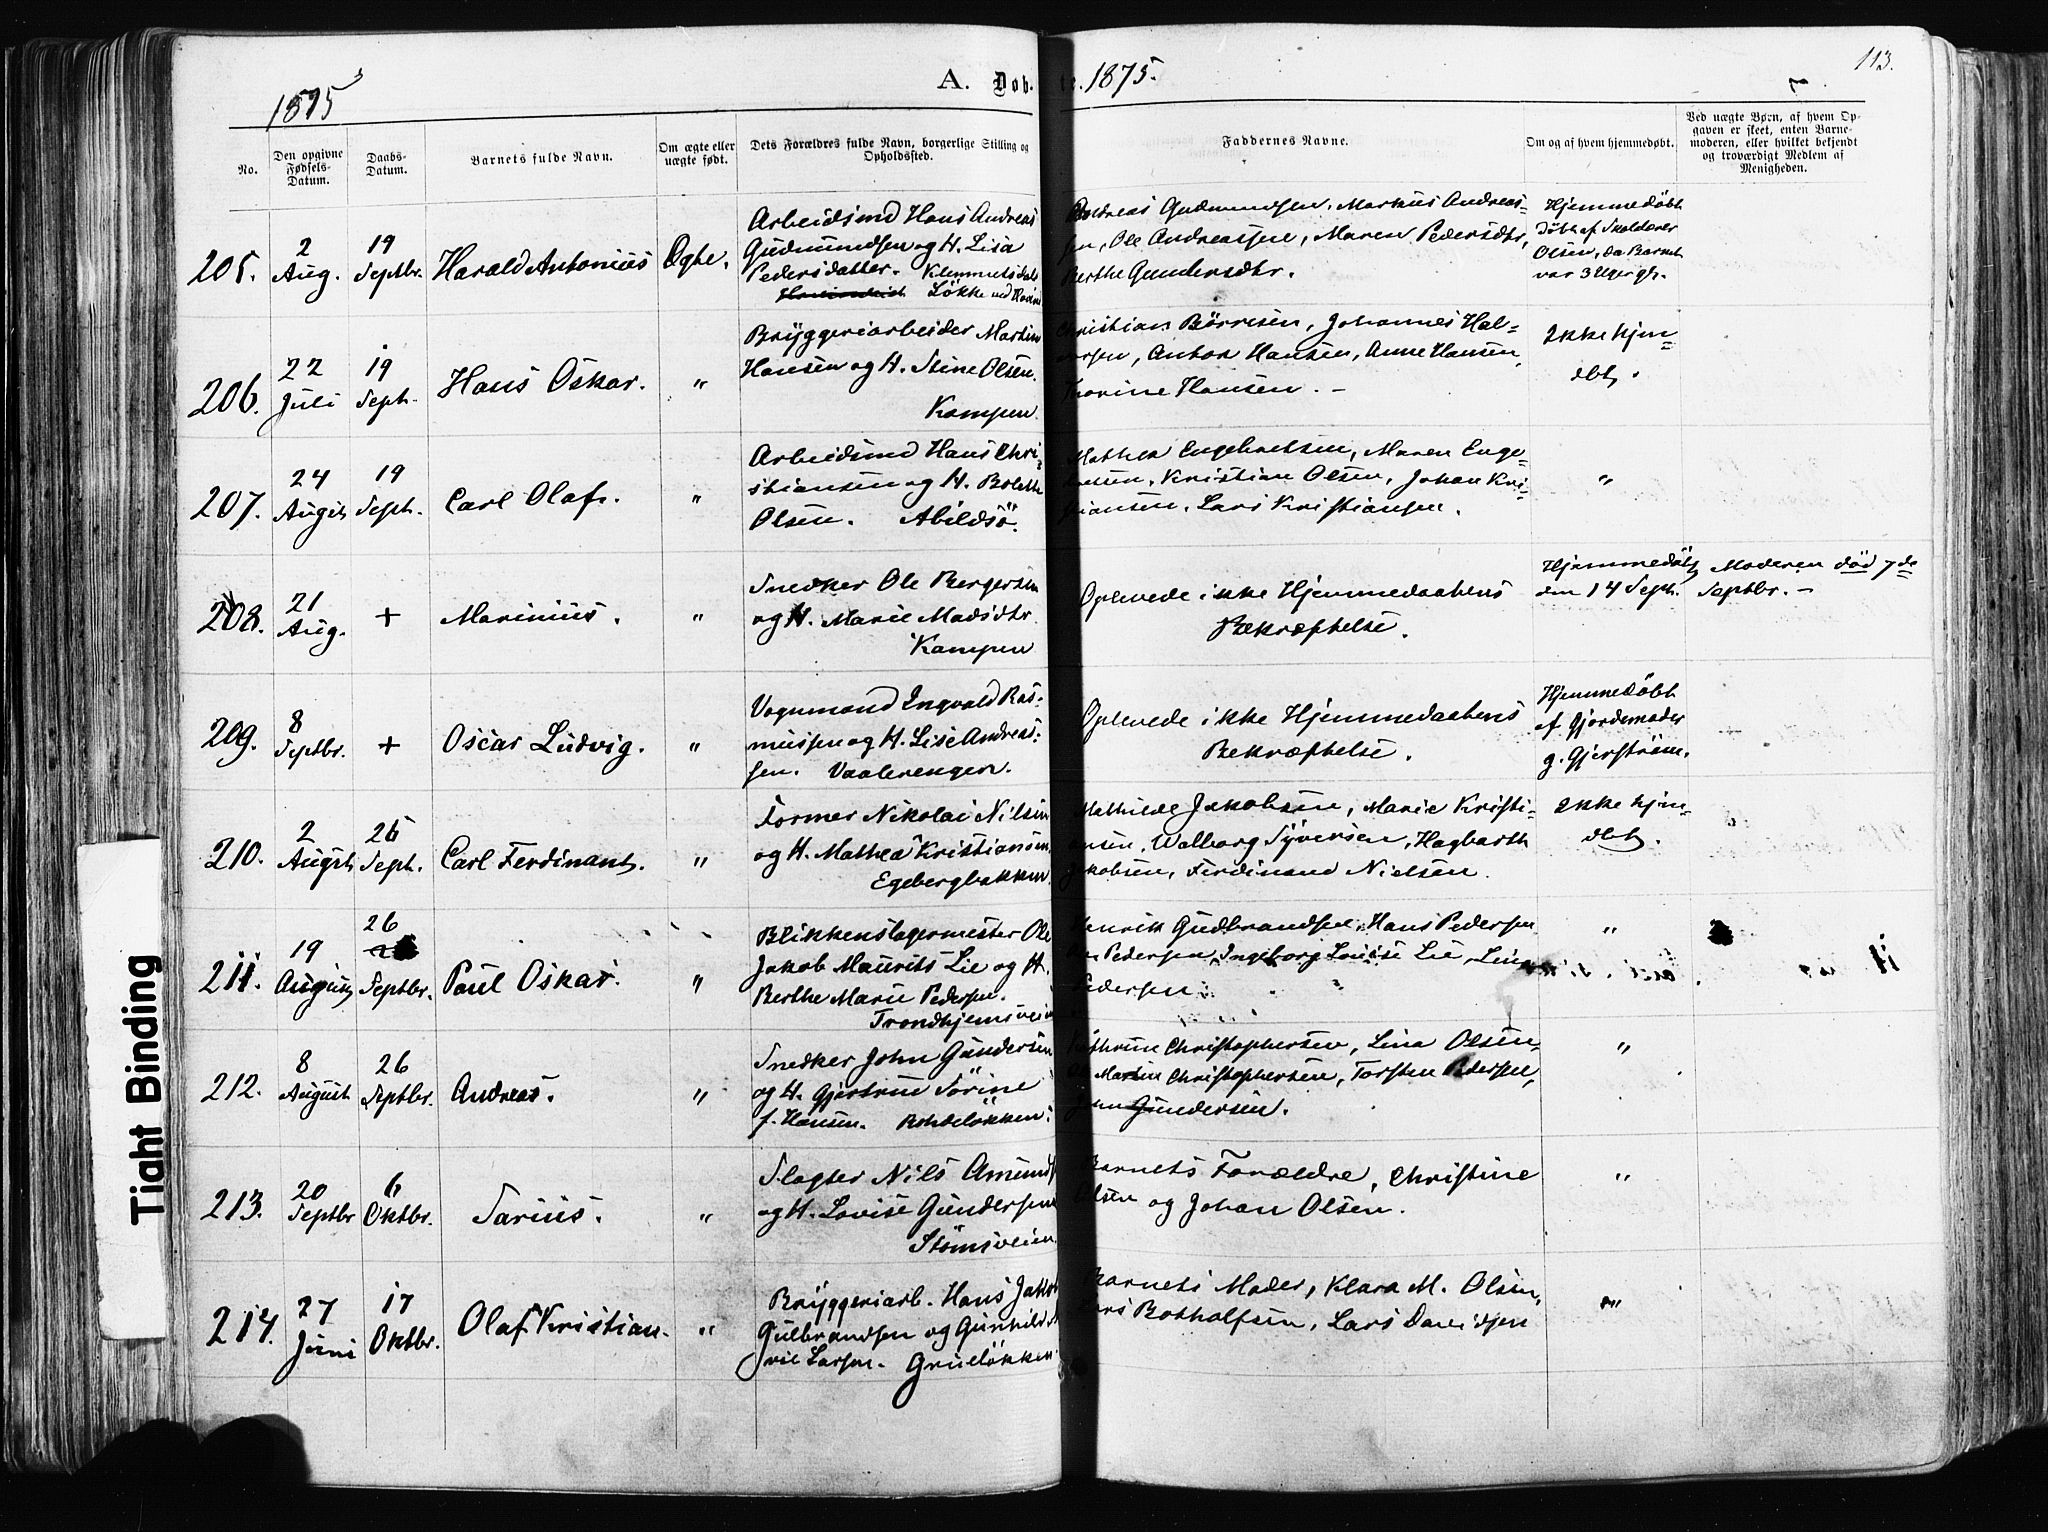 1875
A. Døb
te. 1875.
113.
No.
Den opgivne Fødsels-Datum.
Daabs-Datum.
Barnets fulde Navn.
Om ægte eller uægte født.
Dets Forældres fulde Navn, borgerlige Stilling og Opholdssted.
Faddernes Navne.
Om og af hvem hjemmedøbt.
Ved uægte Børn, af hvem Opgaven er skeet, enten Barnemoderen, eller hvilket bekjendt og troværdigt Medlem af Menigheden.
205.
2 Aug.
19 Septbr.
Harald Antonius
Ægte.
Arbeidsmd Hans Andreas
Gudmundsen og H. Lisa
Pedersdatter. Klemmetsdals
Løkke ved
Andreas Gudmundsen, Markus Andreas-
sen, Ole Andreassen, Maren Pedersdtr,
Berthe Gundersdtr.
Hjemmedøbt
Døbt af Skolelærer
Olsen, da Barnet
var 3 Uger gl.
206.
22 Juli
19 Septr.
Hans Oskar.
"
Bryggeriarbeider Martin
Hansen og H. Stine Olsen.
Kampen.
Christian Børresen, Johannes Hal-
Anton Hansen, Anne Hansen,
Thorine Hansen. -
Ikke hjm-
dbt.
207.
24 Augst
19 Septr.
Carl Olaf.
"
Arbeidsmd Hans Chri-
stiansen og H. Bolette
Olsen. Abildsø.
Mathea Engebretsen, Maren Enge-
bretsen, Kristian Olsen, Johan Kri-
stiansen, Lars Kristiansen.
"
208.
21 Aug.
+
Marinius.
"
Snedker Ole Bergersen
og H. Marie Madsdtr.
Kampen
Oplevede ikke Hjemmedaabens
Bekræftelse.
Hjemmedøbt
den 14 Septr.
Moderen død 7de
Septbr. -
209.
8 Septbr.
+
Oscar Ludvig.
"
Vognmand Ingvald Ras-
mussen og H. Lise Andreas-
sen. Vaalerengen.
Oplevede ikke Hjemmedaabens
Bekræftelse.
Hjemmedøbt
af Gjordemoder
g. Gjerstrøm.
210.
2 Augst
26 Septr.
Carl Ferdinant.
"
Former Nikolai Nilsen
og H. Mathea Kristiansen,
Egebergbakken.
Mathilde Jakobsen, Marie Kristi-
ansen, Walborg Syversen, Hagbarth
Jakobsen, Ferdinand Nielsen.
Ikke hjm-
dbt.
211.
19 August
26
Septbr.
Paul Oskar.
"
Blikkenslagermester Ole
Jakob Maurits Lie og H.
Berthe Marie Pedersen.
Trondhjemsvein
Henrik Gudbrandsen, Hans Pedersen
Pedersen, Ingeborg Louise Lie, Lina
Pedersen.
"
212.
8 August
26 Septbr.
Andreas.
"
Snedker John Gundersen
og H. Gjertrud Sørine
f. Hansen. Rohdeløkken.
Kathrine Christophersen, Lina Olsen,
Martin Christophersen, Torsten Pedersen,
John Gundersen.
"
213.
20 Septbr
6 Oktbr.
Sarius.
"
Slagter Nils Amunds
og H. Lovise Gundersen
Strømsveien.
Barnets Forældre, Christine
Olsen og Johan Olsen.
"
214.
27 Juni
17 Oktbr.
Olaf Kristian.
"
Bryggeriarb. Hans Jakob
Gulbrandsen og Gunhild
Larsen. Grüeløkken
Barnets Moder, Klara M. Olsen,
Lars Botholfsen, Lars Danielsen
"
Tight Binding